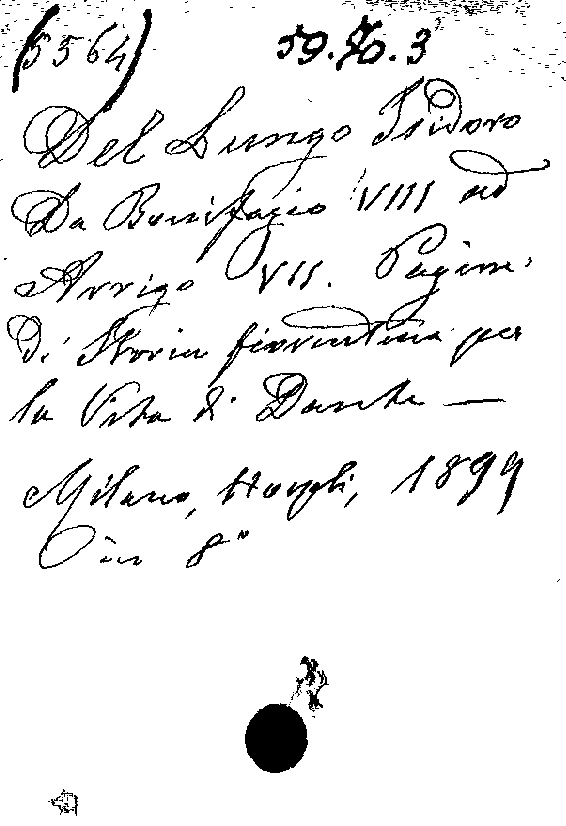 (5564) 59.70.3
Del Lungo Isidoro
Da Bonifazio VIII ad
Arrigo VII. Pagine
di Storia fiorentina per
la Vita di Dante —
Milano, Hoepli, 1899
in 8°